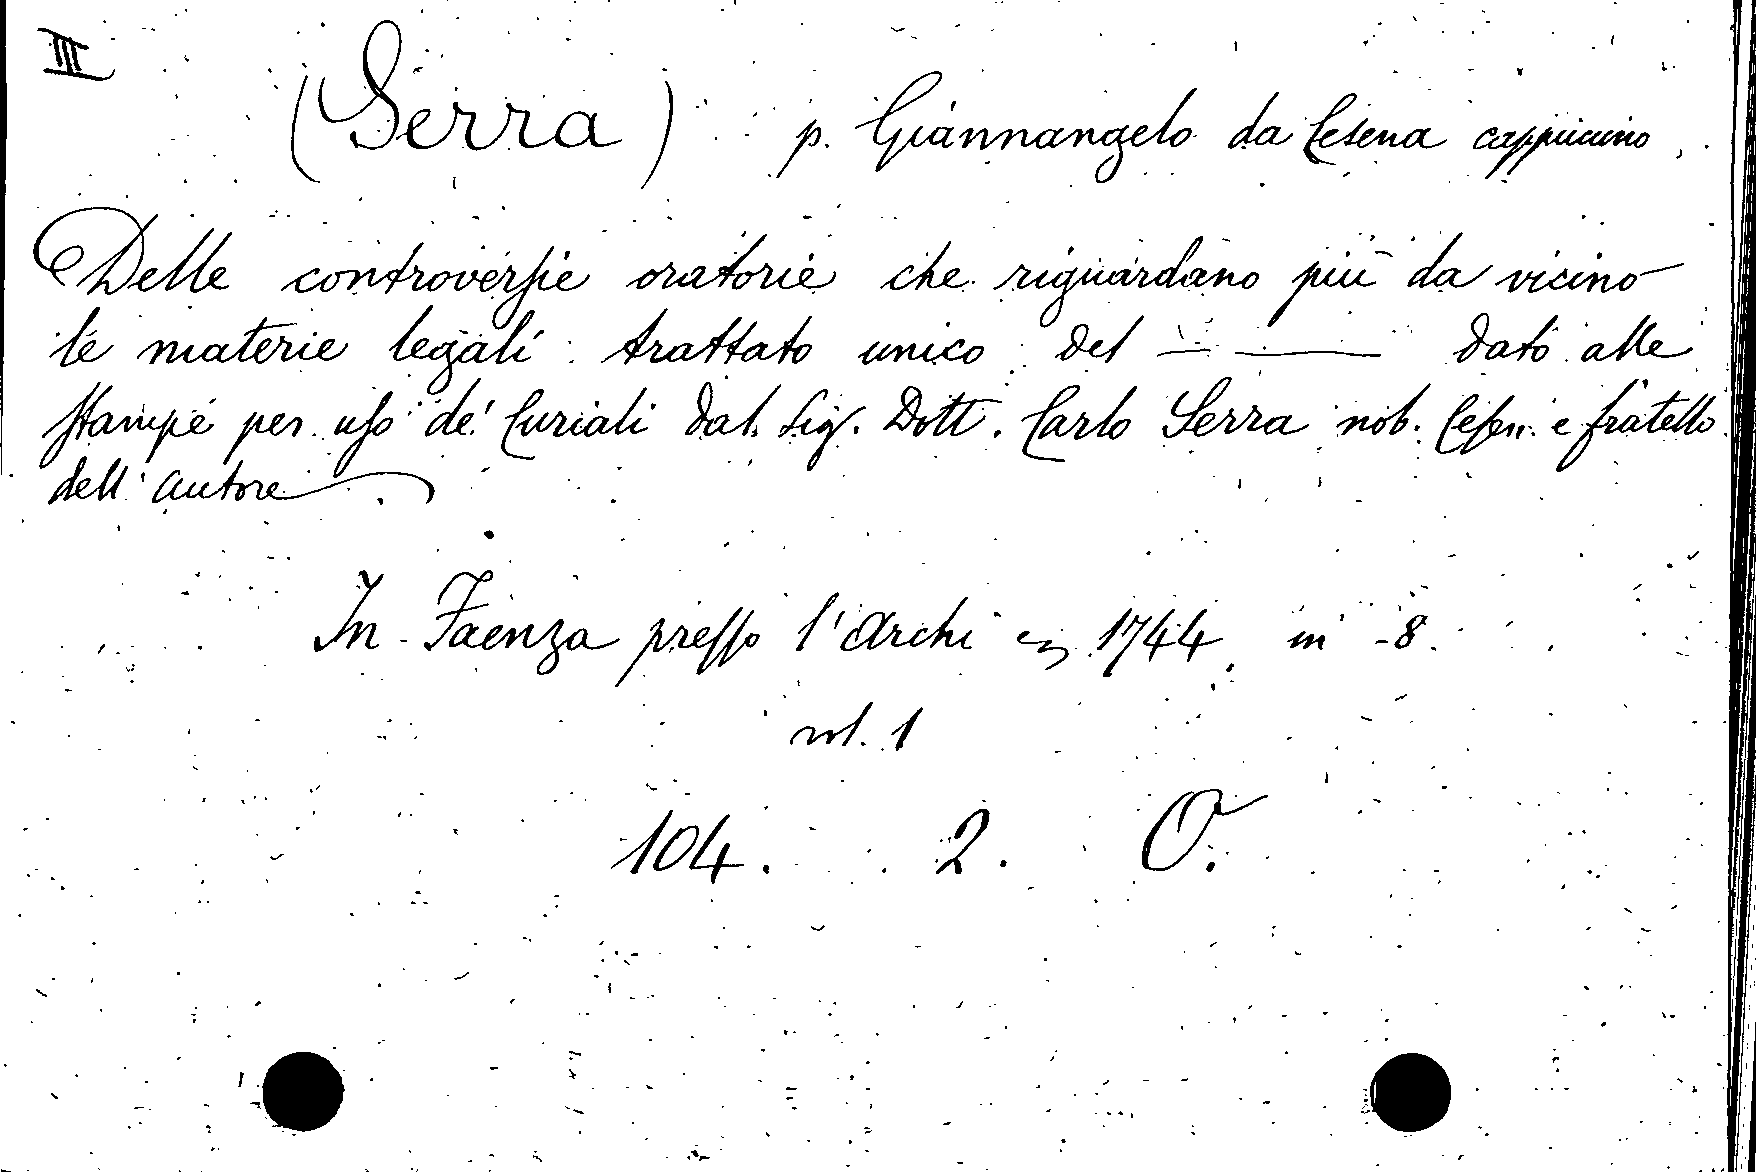 III
(Serra) p. Giannangelo da Cesena cappuccino
Delle controverſie oratorie che riguardano più da vicino
le materie legali trattato unico del — —— dato alle
ſtampe per uſo de' Curiali dal Sig. Dott. Carlo Serra nob. Ceſen. e fratello
dell'autore
In Faenza preſſo l'Archi 1744 in -8.
vol. 1
104. 2. O.